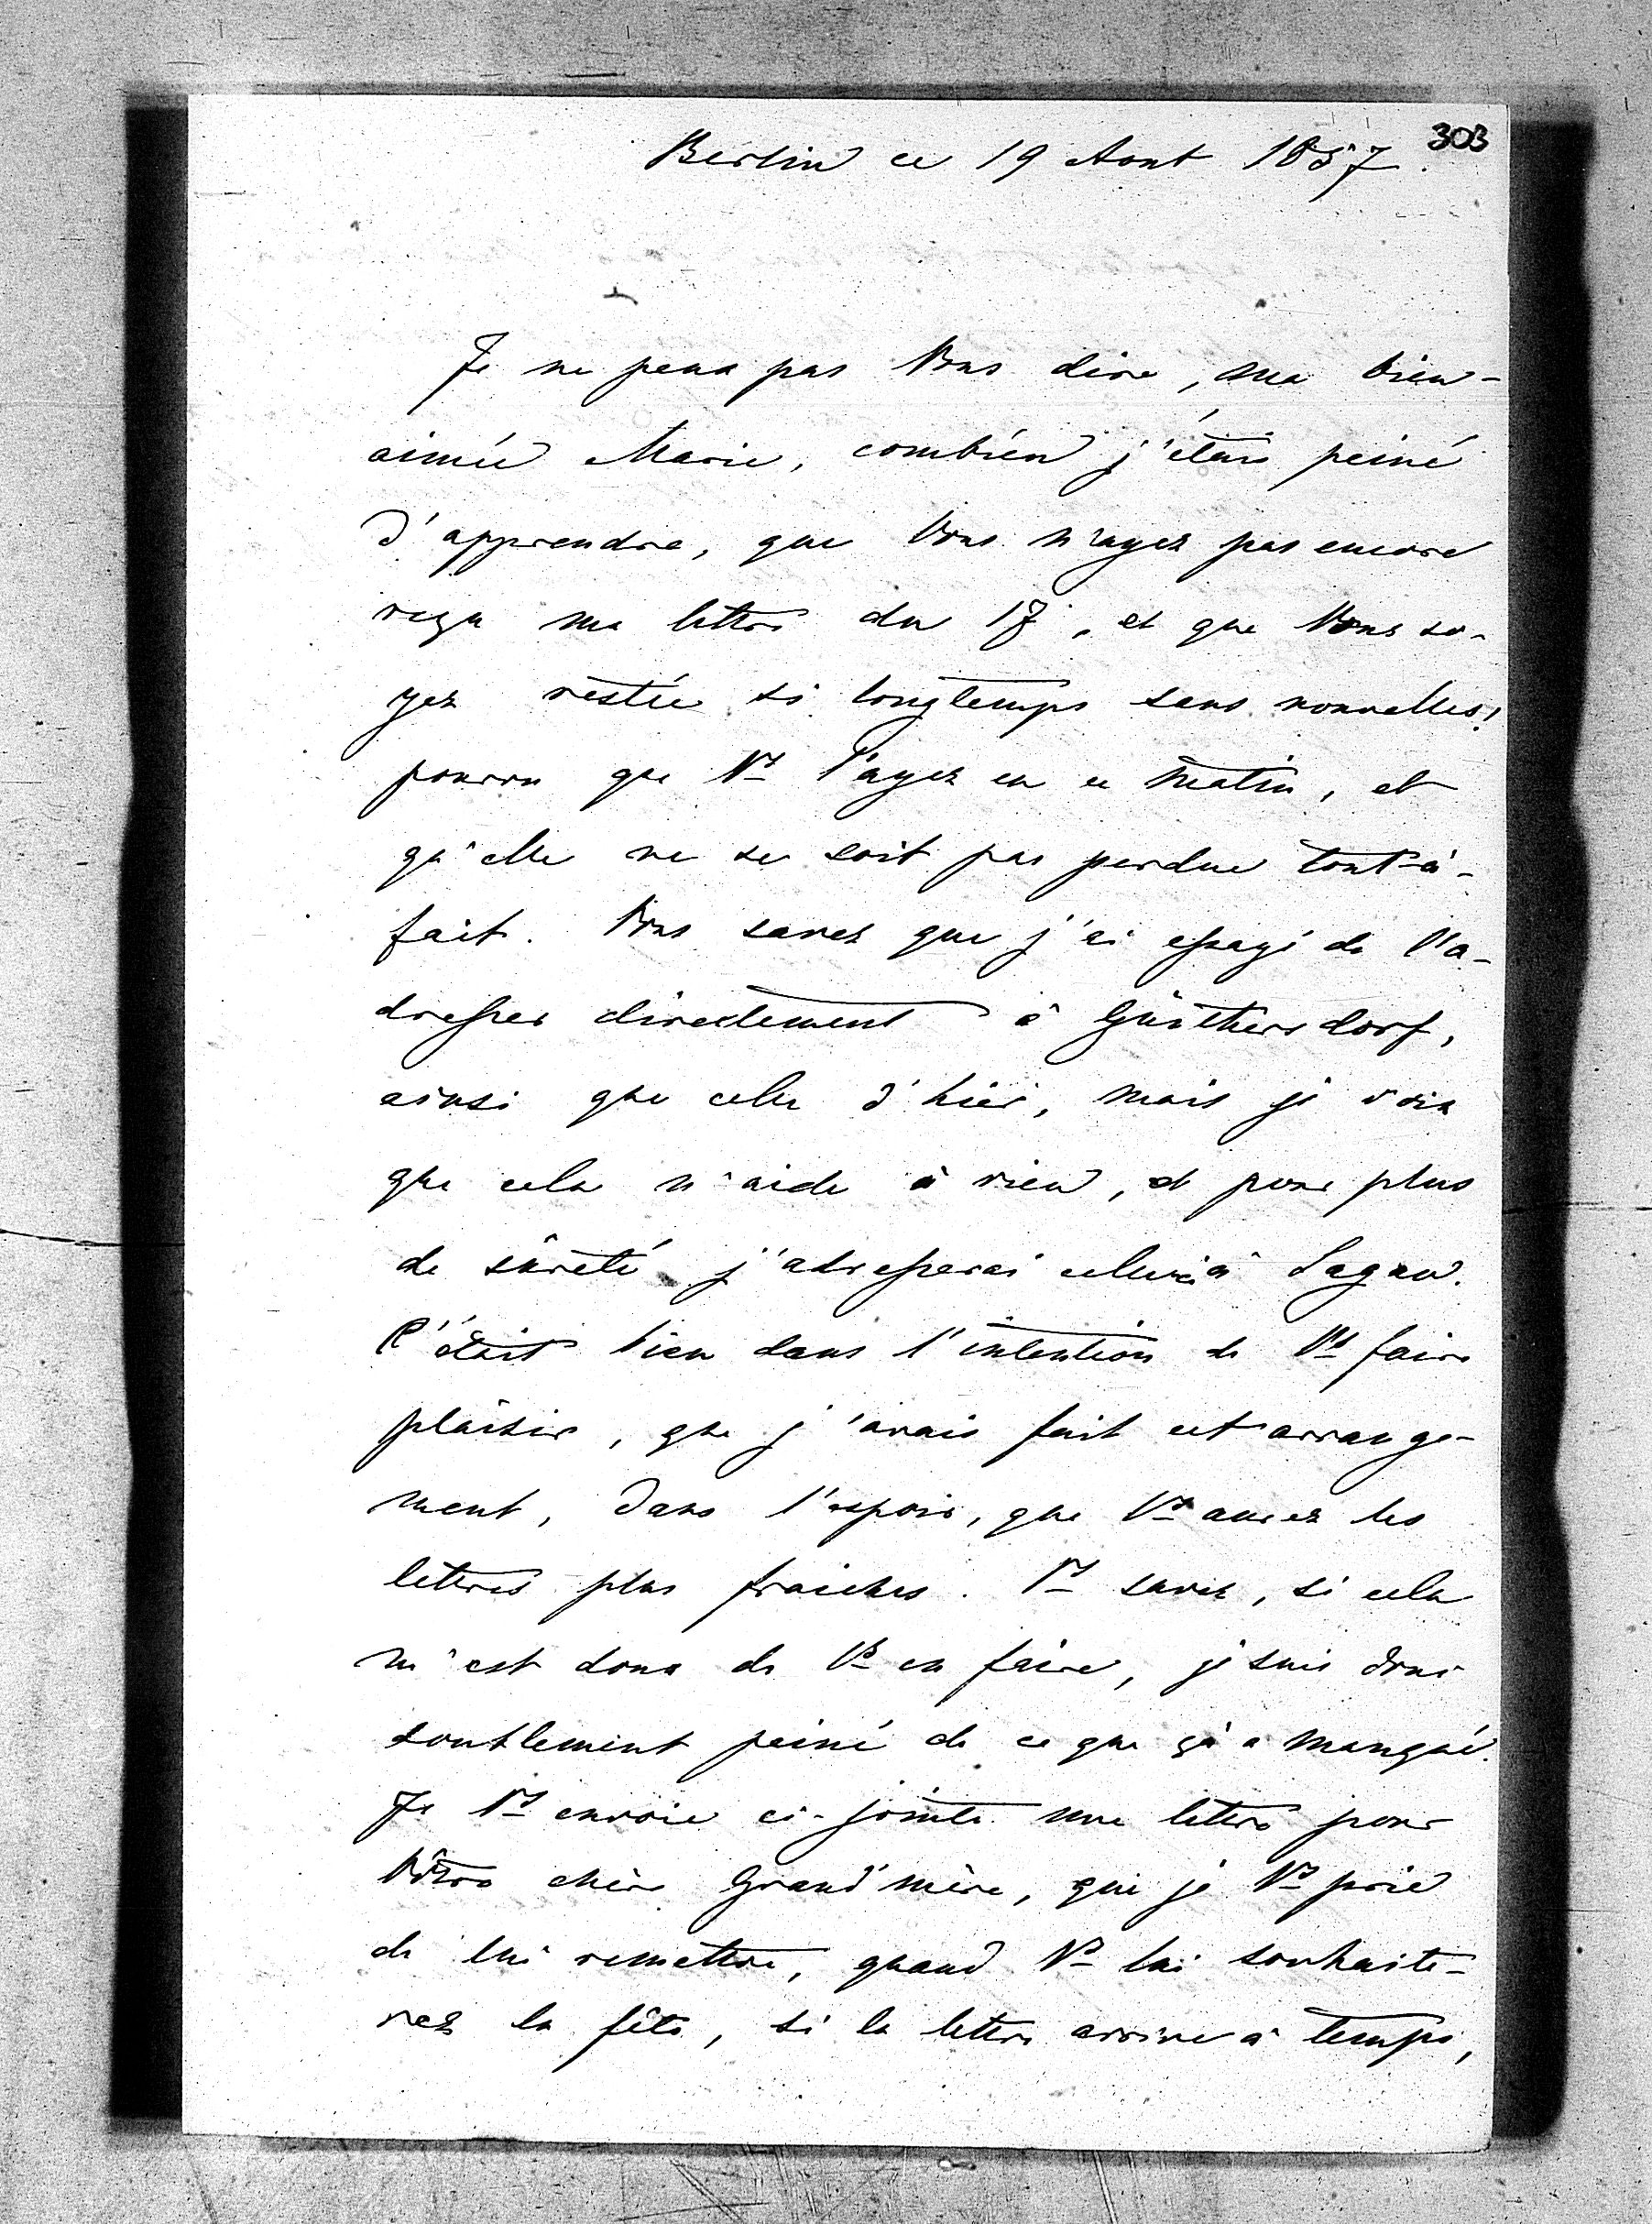 303
Berlin ce 19 Aout 1857.
Je ne peux pas Vous dire, ma bien-
aimée Marie, combién j'étais peiné
d'apprendre, que Vous n'ayez pas encore
reçu ma lettre du 17, et que Vous so-
yez restée si longtemps sans nouvelles!
pourvu que Vs l'ayez eu ce matin, et
qu'elle ne se soit pas perdue tout-à-
fait. Vous savez que j'ai essayé de l'a-
dresser directement à Günthersdorf,
ainsi que celle d'hier, mais je vois
que cela n'aide à rien, et pour plus
de sûreté j'adresserai celle-ci à Sagan.
C'était bien dans l'intention de Vs faire
plaisir, que j'avais fait cet arrange-
ment, dans l'espoir, que Vs auriez les
lettres plus fraiches. Vs savez, si cela
m'est doux de Vs en faire, je suis donc
doublement peiné de ce que ça a manqué.
Je Vs envoie ci-jointe une lettre pour
Vôtre chère Grand'mère, que je Vs prie
de lui remettre, quand Vs lui souhaite-
rez la fête, si la lettre arrive à temps,